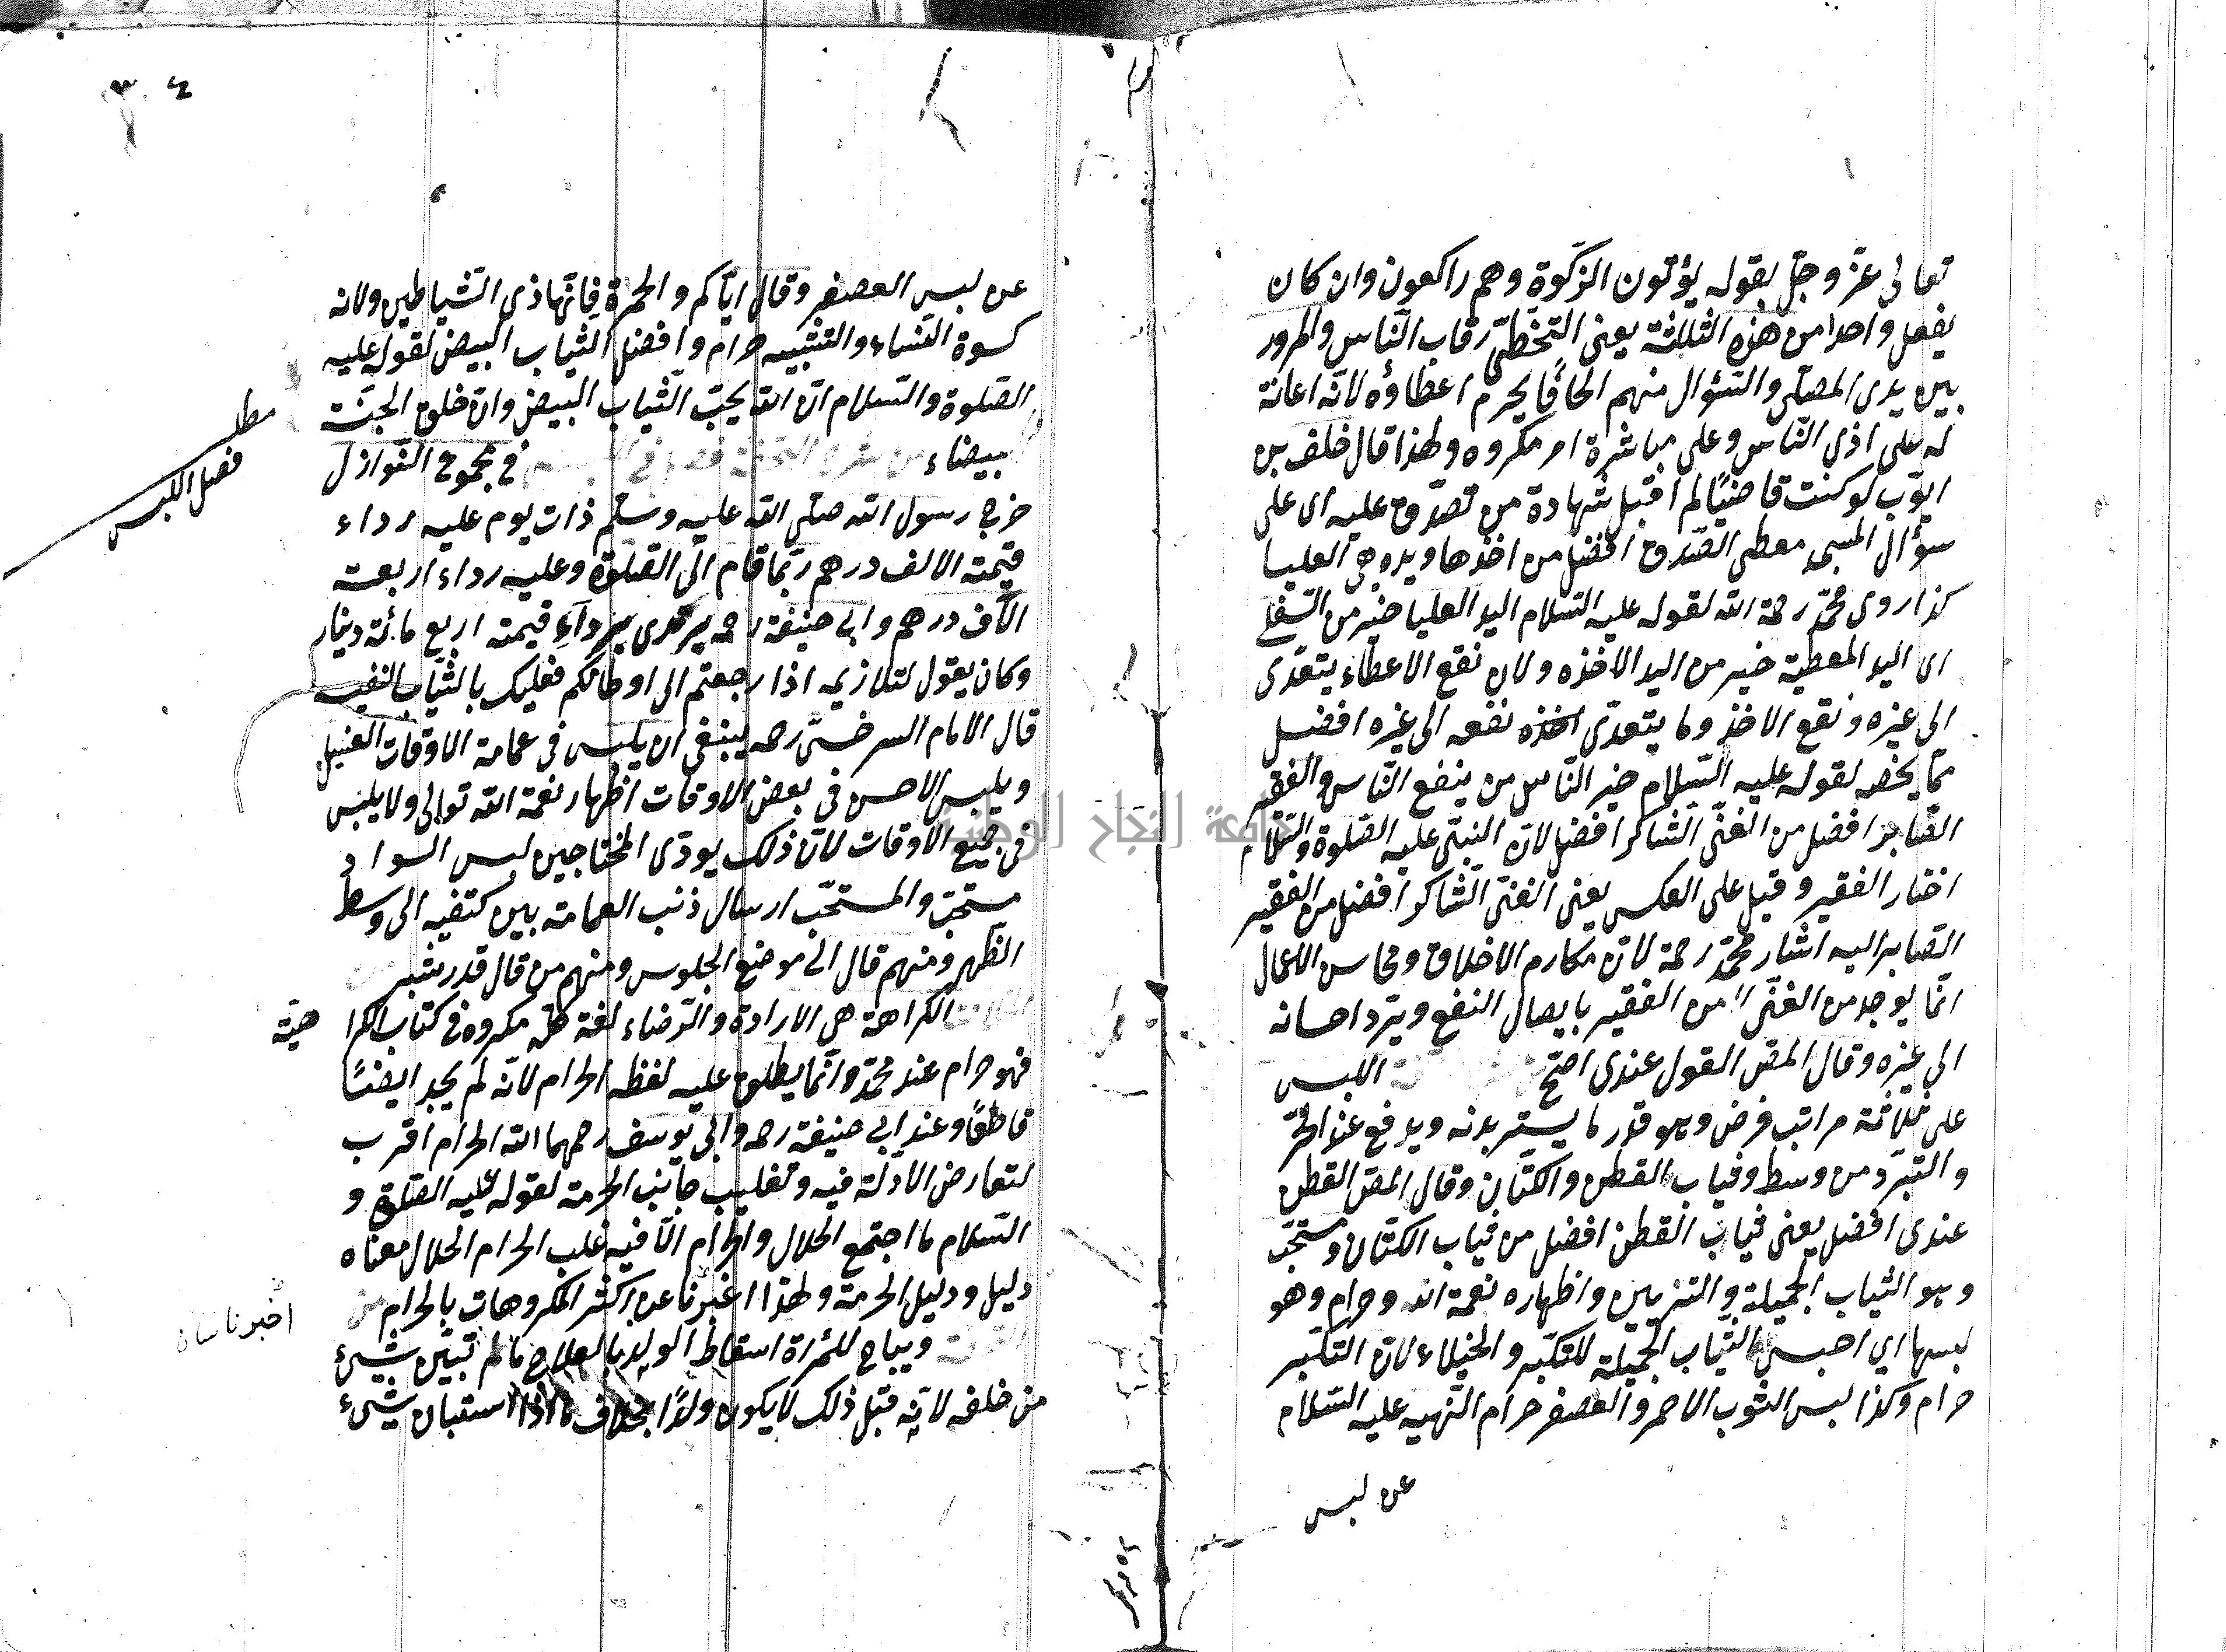 تعالى عزّ وجلّ بقوله يؤتون الزكوة وهم راكعون وان كان
يفعل واحدا من هذه الثلثة يعنى التخطّى رقاب النّاس والمرور
بين يدى المصلّى والسّؤال منهم الحافًا يحرم اعطاؤه لانّه اعانة
له على اذى النّاس وعلى مباشرة امر مكروه ولهذا قال خلف بن
ايّوب لو كنت قاضيًا لم اقبل شهادة من تصدّق عليه اى على
سؤال المسجد معطى الصّدق افضل من اخذها ويده هى العليا
كذا روى محمّد رحمة الله لقوله عليه السّلام اليد العليا خير من السّفلى
اى اليد المعطية خير من اليد الاخذه ولان نفع الاعطاء يتعدّى
الى غيره ونفع الاخذ وما يتعدّى اخذه نفعه الى غيره افضل
ممّا يخصه لقوله عليه السّلام خير النّاس من ينفع النّاس والفقير
الصّابر افضل من الغنّى الشّاكر افضل لانّ النبّى عليه الصّلوة والسّلام
اختار الفقير وقيل على العكس يعنى الغنّى الشّاكر افضل من الفقير
الصّابر اليه اشار محمّد رحمة لانّ مكارم الاخلاق ومحاسن الاعمال
انّما يوجد من الغنّى من الفقير بايصال النفع ويرّد احسانه
الى غيره وقال المصّ القول عندى اصّح اللبس
على ثلاثة مراتب فرض وهو قدر ما يستر بدنه ويدفع عند الحّر
والتبرّد من وسط وثياب القطن والكتّان وقال المصّ القطن
عندى افضل يعنى ثياب القطن افضل من ثياب الكتّان ومستحّب
وهو الثياب الجميلة والتزيين واظهاره نعمة الله وحرام وهو
لبسها اى احبس الثّياب الجميلة للتكبّر والخيلاء لانّ التكّبر
حرام وكذا لبس الثوب الاحمر والعصفر حرام النّهيه عليه السّلام
عن لبس
عن لبس العصفر وقال ايّاكم والحمرة فانّها ذى الشّياطين ولانه
كسوة النّساء والتشبيه حرام وافضل الثياب البيض لقوله عليه
الصّلوة والسّلام انّ الله يحبّ الثياب البيض وان خلق الجنّة
بيضاء فى مجموع النّوازل
مطلب
فصل اللبس
خرج رسول الله صلّى الله عليه وسلّم ذات يوم عليه رداء
قيمته الالف درهم ربّما قام الى الصّلوة وعليه رداء اربعة
الآف درهم وابى حنيفة رحمه يرتدى برداءٍ قيمته اربع مائة دينار
وكان يقول لتلازيمه اذا رجعتم الى اوطانكم فعليك بالثّياب النفيس
قال الامام السرخسّى رحمه ينبغى ان يلبس فى عامة الاوقات الغسيل
ويلبس الاحسن فى بعض الاوقات اظهار نعمة الله توالى ولا يلبس
فى جميع الاوقات لانّ ذلك يودّى المحتاجين لبس السواد
مستحّب والمستحّب ارسال ذنب العمامة بين كتفيه الى وسط
الظّهر ومنهم قال الى موضع الجلوس ومنهم من قال قدر شبر
الكراهة هى الارادة والرّضاء لغة كلّ مكروه فى كتاب الكرا هيّة
فهو حرام عند محمّد وانّما يطلق عليه لفظه الحرام لانّه لم يجد ايضًا
قاطعًا وعند ابى حنيفة رحمه وابى يوسف رحمهما الله الحرام اقرب
لتعارض الادّلة فيه وتغليب جانب الحرمة لقوله عليه الصّلوة و
السّلام ما اجتمع الحلال والحرام الّا فيه غلب الحرام الحلال معناه
دليل ودليل الحرمة ولهذا اغبرنا عن اكثر المكروهات بالحرام
اخبرنا
ويباح للمراة اسقاط الولد بالعلاج ما لم تبيّن شيئ
من خلفه لانّه قبل ذلك لا يكون ولدًا بخلاف ما اذا استبان شيئ
جامعة النجاح الوطنية